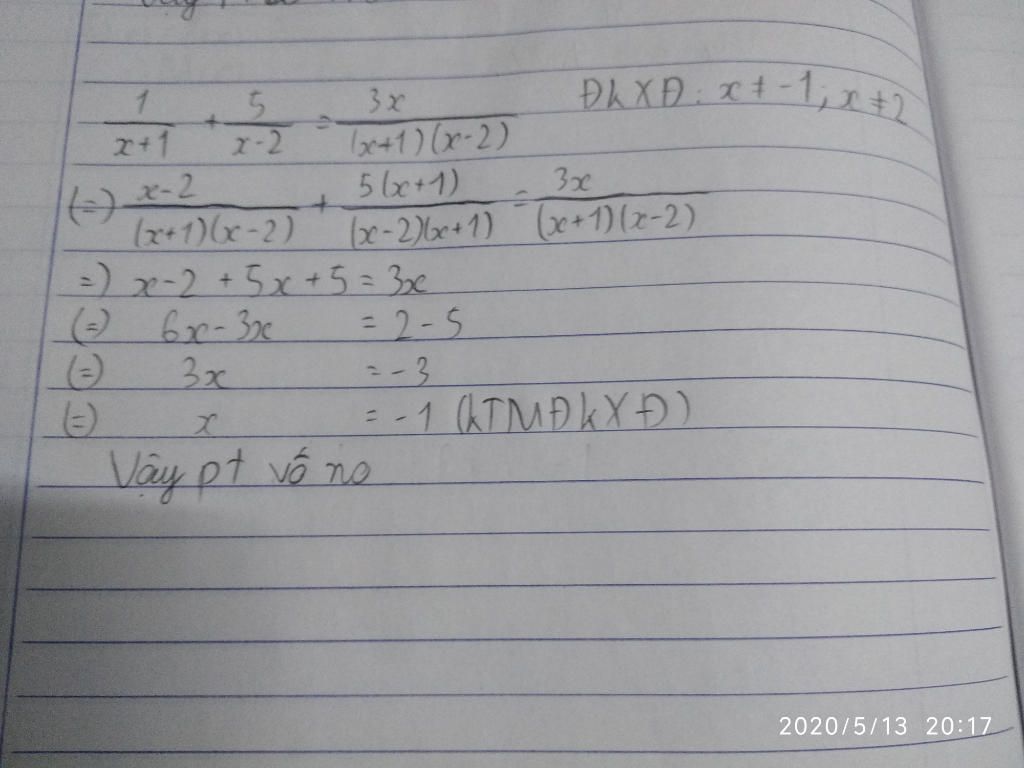 1/(x+1) + 5/(x-2) = 3x/((x+1)(x-2)) ĐkXĐ: x ≠ -1; x ≠ 2
(=) (x-2)/((x+1)(x-2)) + 5(x+1)/((x-2)(x+1)) = 3x/((x+1)(x-2))
=) x-2 + 5x + 5 = 3x
(=) 6x - 3x = 2 - 5
(=) 3x = -3
(=) x = -1 (kTMĐkXĐ)
Vậy pt vô no
2020/5/13 20:17